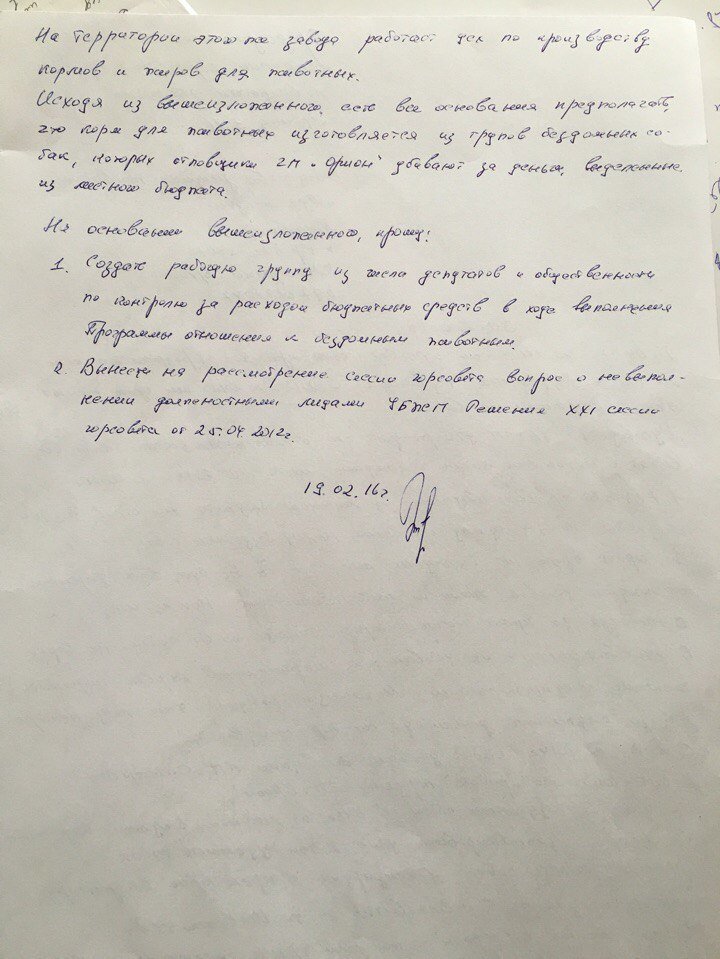 На территории этого же завода работает цех по производству
кормов и жиров для животных.
Исходя из вышеизложенного, есть все основания предполагать,
что корм для животных изготовляется из трупов бездомных со-
бак, которых отловщики ЧП "Орион" убивают за деньги, выделенные
из местного бюджета.
На основании вышеизложенного, прошу:
1. Создать рабочую группу из числа депутатов и общественности
по контролю за расходом бюджетных средств в ходе выполнения
Программы отношения к бездомным животным.
2. Вынести на рассмотрение сессии горсовета вопрос о невыпол-
нении должностными лицами УБЖСП Решения XXI сессии
горсовета от 25.04.2012г.
19.02.16г.